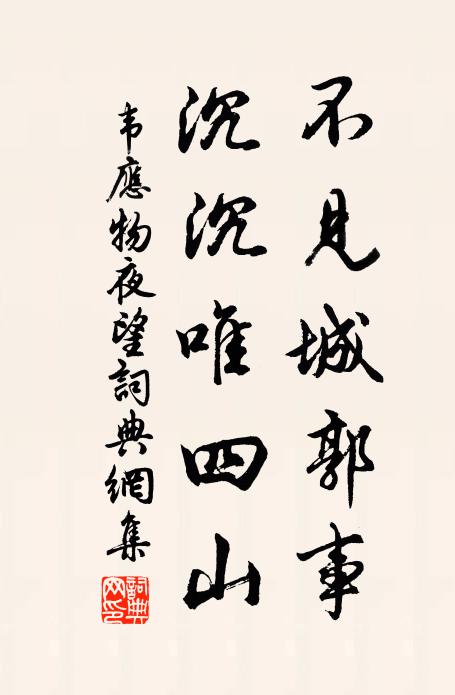 不見城郭事
沉沉唯四山
韦應物夜望詞典網集
詞典网印